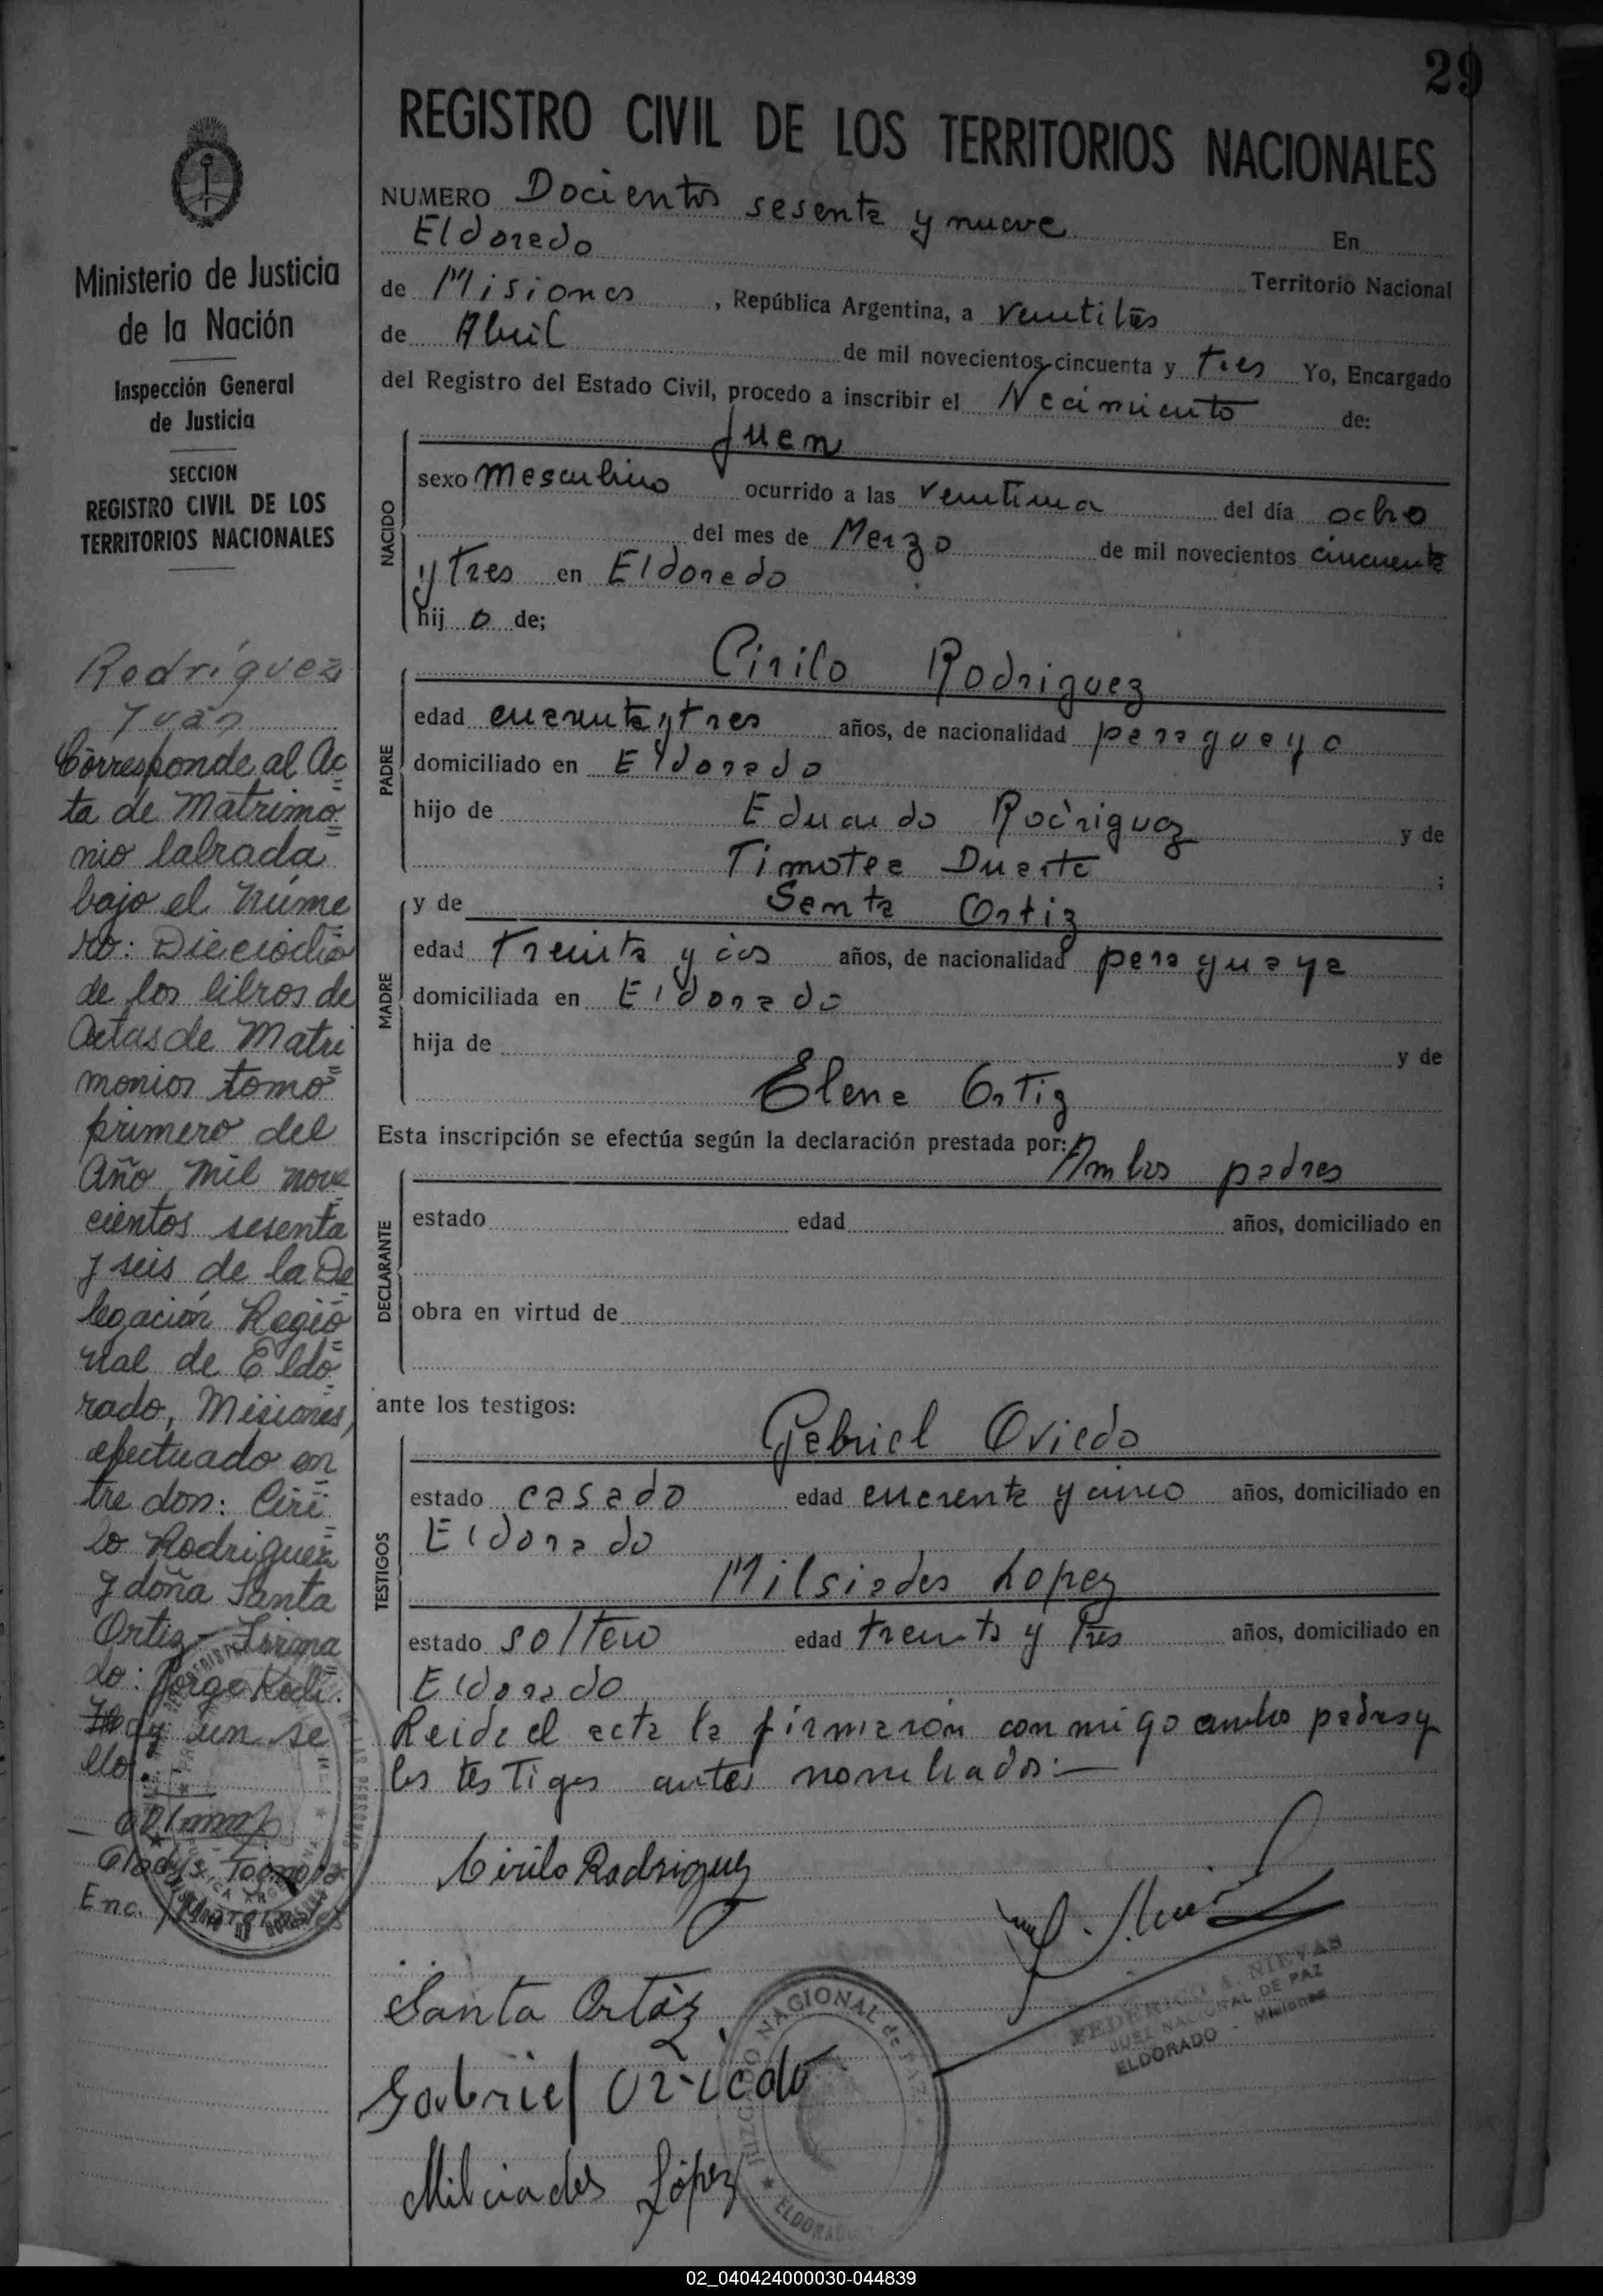 29
REGISTRO CIVIL DE LOS TERRITORIOS NACIONALES
NUMERO Docientos sesenta y nueve En
Eldorado Territorio Nacional
de Misiones, República Argentina, a ventitrés
de Abril de mil novecientos cincuenta y tres Yo, Encargado
del Registro del Estado Civil, procedo a inscribir el Nacimiento de:
Juan
NACIDO
sexo masculino ocurrido a las ventiuna del día ocho
del mes de Marzo de mil novecientos cincuenta
y tres en Eldorado
hij o de;
Cirilo Rodriguez
PADRE
edad cuarenta y tres años, de nacionalidad paraguayo
domiciliado en Eldorado
hijo de Eduardo Rodriguez y de
Timotea Duarte ;
y de Santa Ortiz
MADRE
edad treinta y dos años, de nacionalidad paraguaya
domiciliada en Eldorado
hija de y de
Elena Ortiz
Esta inscripción se efectúa según la declaración prestada por: Ambos padres
DECLARANTE
estado edad años, domiciliado en
obra en virtud de
ante los testigos:
Gabriel Oviedo
TESTIGOS
estado casado edad cuarenta y cinco años, domiciliado en
Eldorado
Milsiades Lopez
estado soltero edad treinta y tres años, domiciliado en
Eldorado
Leida el acta la firmaron con migo ambos padres y
los testigos antes nombrados:—
Cirilo Rodriguez
Santa Ortiz
Gabriel Oviedo
Milciades López
FEDERICO A. NIEVAS
JUEZ NACIONAL DE PAZ
ELDORADO - Misiones
JUZGADO NACIONAL de PAZ
ELDORADO
Ministerio de Justicia
de la Nación
Inspección General
de Justicia
SECCION
REGISTRO CIVIL DE LOS
TERRITORIOS NACIONALES
Rodríguez
Juan
Corresponde al Ac
ta de Matrimo
nio labrada
bajo el Núme
ro: Dieciocho
de los libros de
Actas de Matri
monios tomo
primero del
Año mil nove
cientos sesenta
y seis de la De
legación Regio
nal de Eldo
rado, Misiones,
efectuado en
tre don: Ciri
lo Rodriguez
y doña Santa
Ortiz - Firma
do: Jorge Kodi.
Hay un se
llo.
Gladys
Enc.
02_040424000030-044839